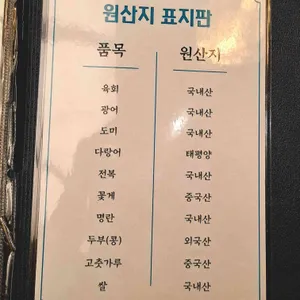 원산지 표지판
품목 원산지
육회 국내산
광어 국내산
도미 국내산
다랑어 태평양
전복 국내산
꽃게 중국산
명란 국내산
두부(콩) 외국산
고춧가루 중국산
쌀 국내산